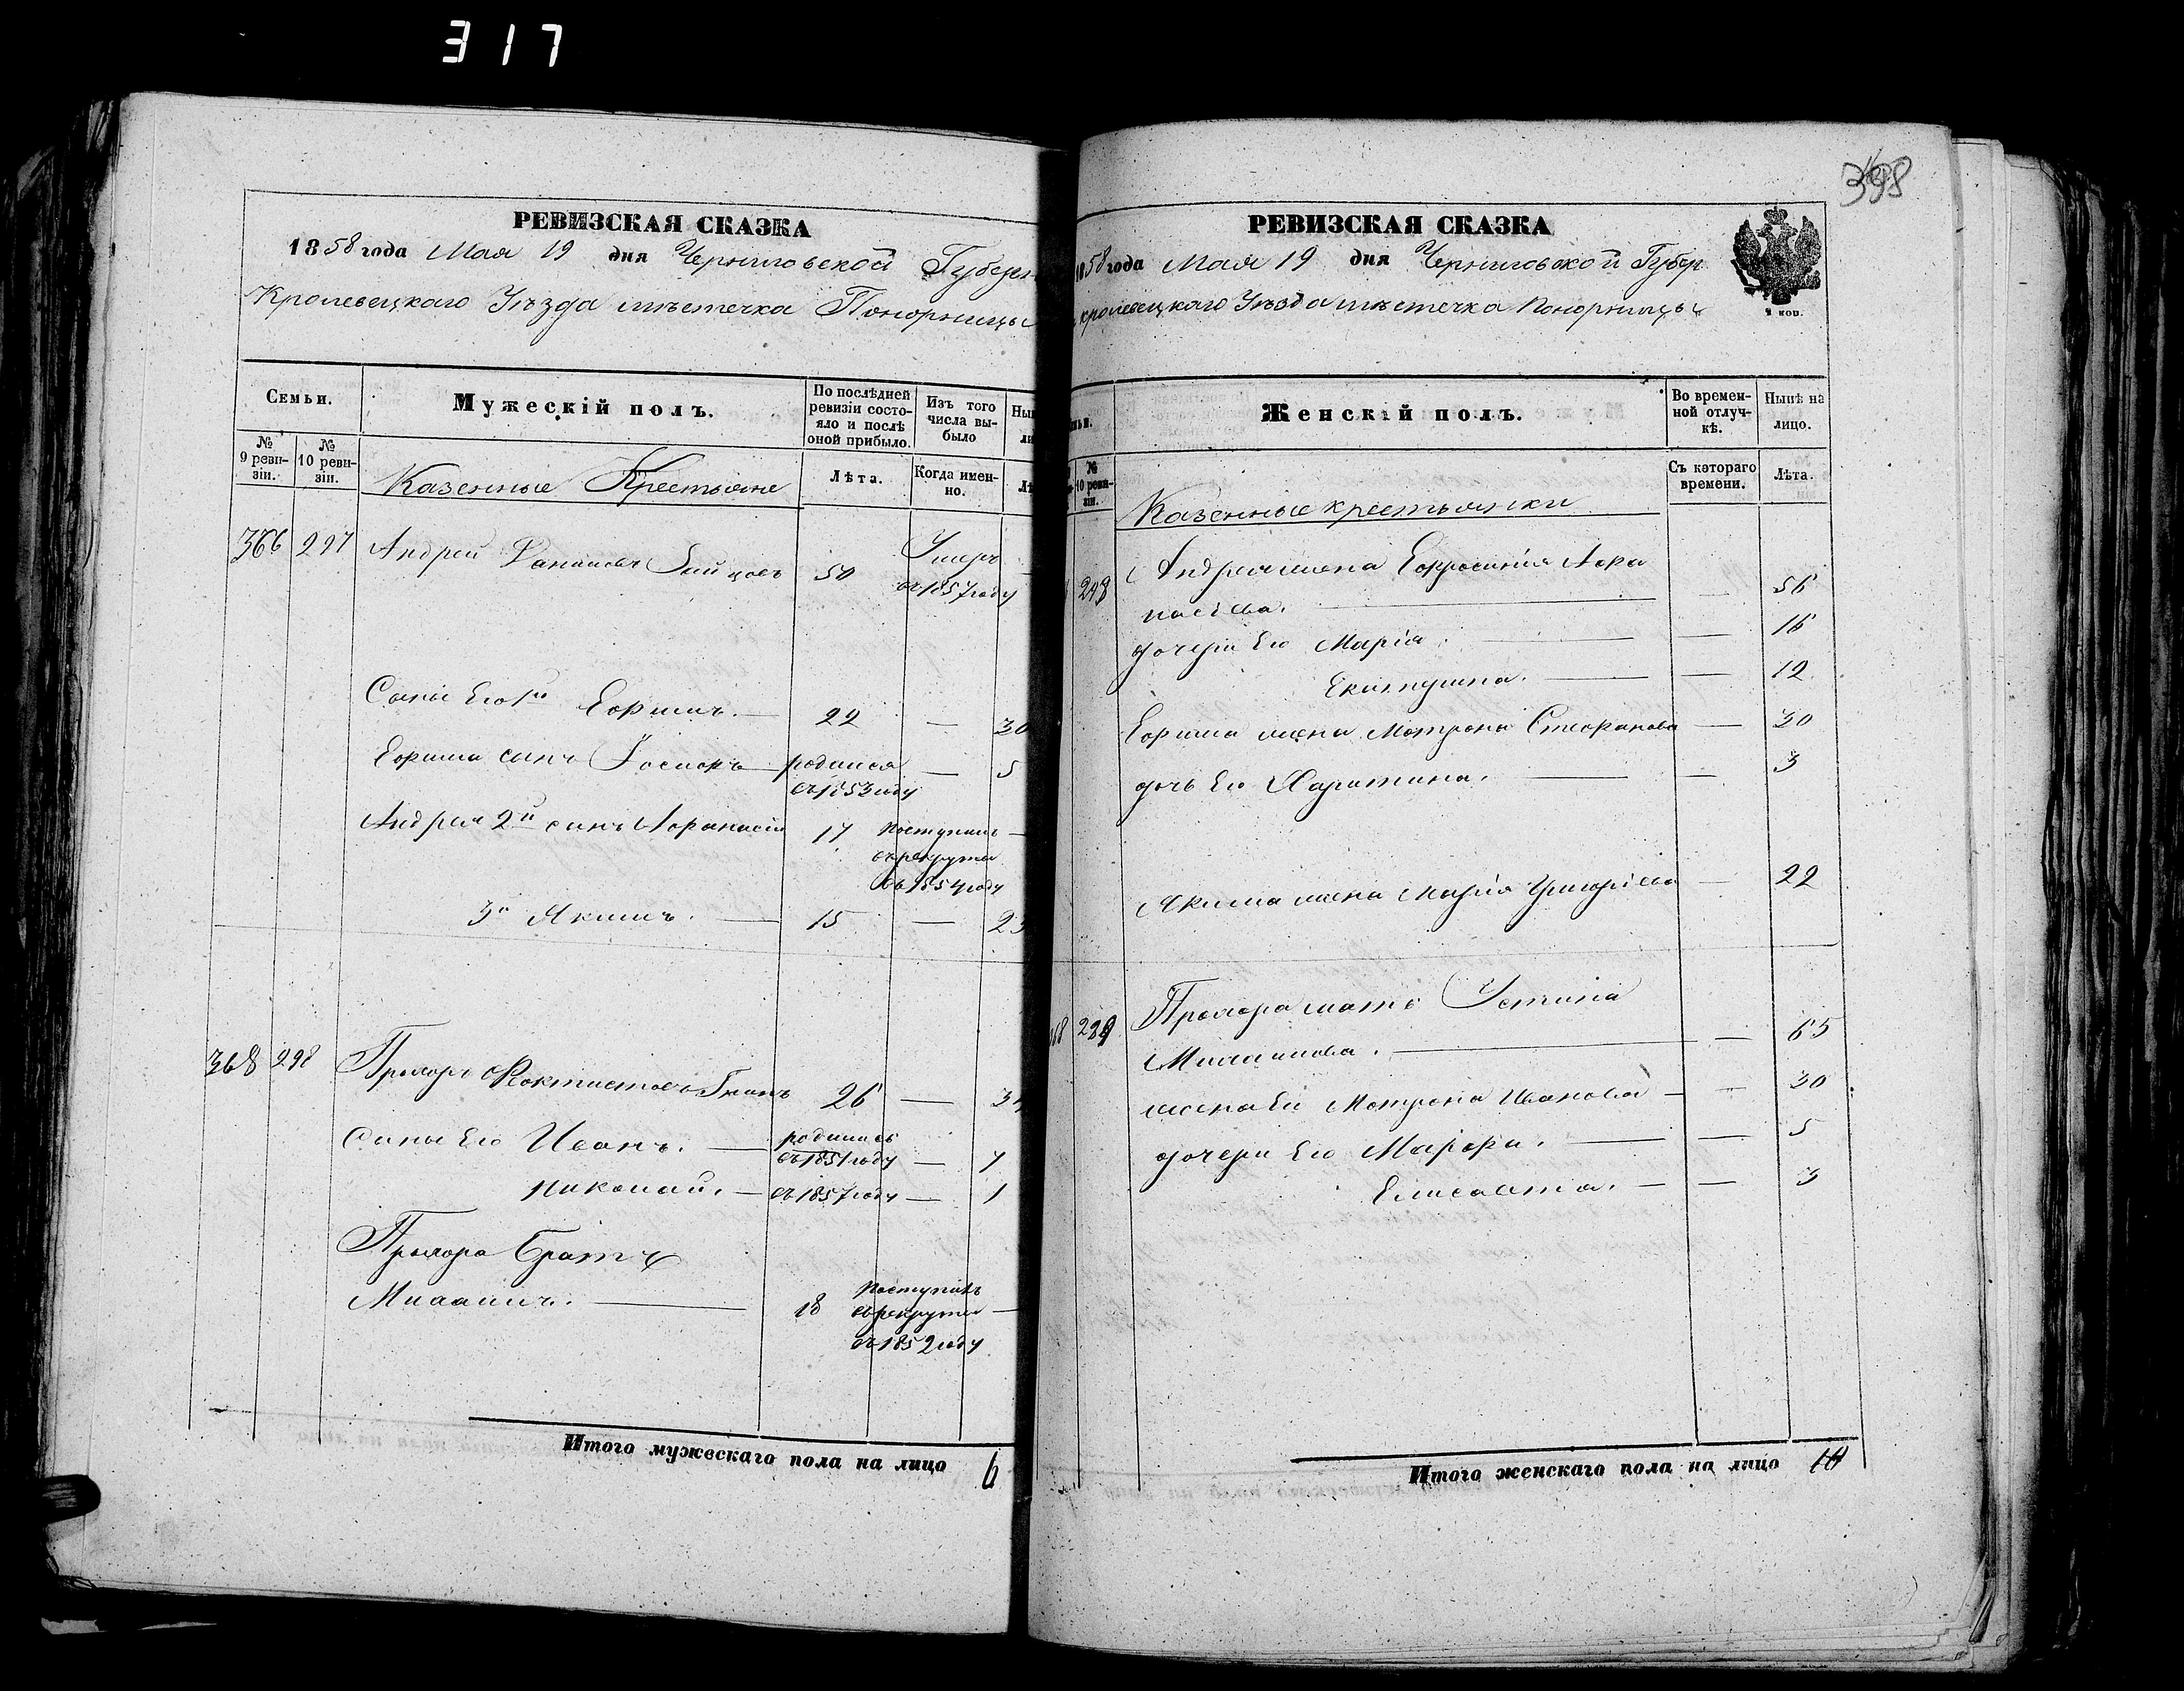 317
РЕВИЗСКАЯ СКАЗКА
1858 года Мая 19 дня Черниговской Губерн
Кролевецкаго Уѣзда мѣстечка Понорницы
Семьи.
Мужескій полъ.
По послѣдней ревизіи состояло и послѣ оной прибыло.
Изъ того числа выбыло
Ны
ли
№ 9 ревизіи.
№ 10 ревизіи.
Казенные Крестьяне
Лѣта.
Когда именно.
Лѣ
366 297 Андрей Даниловъ 50 Умеръ
въ 1857 году
Сыны Его 1й Ефимъ. — 22 — 30
Ефима сынъ Іосифъ — родился — 5
въ 1853 году
Андрея 2й сынъ Афанасій 17 Поступилъ —
въ рекруты
въ 1854 году
3й Якимъ. — 15 — 23
368 298 Прохоръ Феоктистовъ 26 — 34
Сыны Его Иванъ. — родились
въ 1851 году — 7
Николай. — въ 1857 году — 1
Прохора Братъ
Михаилъ. — 18 Поступилъ
въ рекруты —
въ 1852 году
Итого мужескаго пола на лицо 6
398
РЕВИЗСКАЯ СКАЗКА
1858 года Мая 19 дня Черниговской Губер
кролевецкаго Уѣзда мѣстечка Понорницы
2 коп.
ьи.
Женскій полъ.
Во временной отлучкѣ.
Нынѣ на лицо.
№ 10 ревизіи.
Казенные крестьянки
Съ котораго времени.
Лѣта.
Андрея жена Ефросинія Афа
насьева. — — 56
дочери Его Марія. — — 16
Екатерина. — — 12
Ефима жена Мотрона Стефанова — 30
дочь Его Харитина. — — 3
Якима жена Марія Григоріева — 22
68 Прохора мать Устинія
— — 65
жена Его Мотрона Иванова — — 30
дочери Его Марфа. — — 5
Елисавета. — — 3
Итого женскаго пола на лицо 10